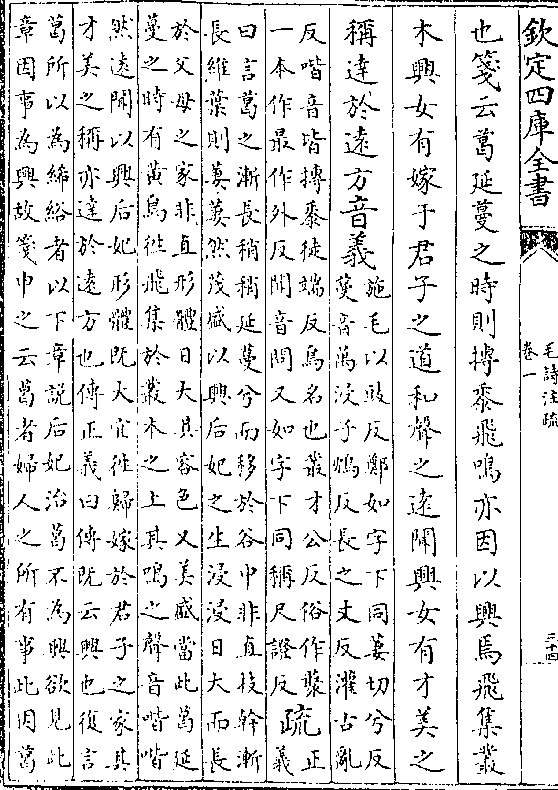 欽定四庫全書
毛詩注疏
卷一
三十四
也箋云葛延蔓之時則摶黍飛鳴亦因以興焉飛集藂
木興女有嫁于君子之道和聲之遠聞興女有才美之
稱達於遠方音義
施毛以豉反鄭如字下同萋切兮反
蔓音萬浸子鴆反長之丈反灌古亂
反喈音皆摶黍徒端反鳥名也叢才公反俗作藂
一本作最作外反聞音問又如字下同稱尺證反
疏
正
義
曰言葛之漸長稍稍延蔓兮而移於谷中非直枝幹漸
長維葉則萋萋然茂盛以興后妃之生浸浸日大而長
於父母之家非直形體日大其容色又美盛當此葛延
蔓之時有黃鳥往飛集於叢木之上其鳴之聲音喈喈
然遠聞以興后妃形體既大宜往歸嫁於君子之家其
才美之稱亦達於遠方也傳正義曰傳既云興也復言
葛所以為絺綌者以下章說后妃治葛不為興欲見此
章因事為興故箋申之云葛者婦人之所有事此因葛